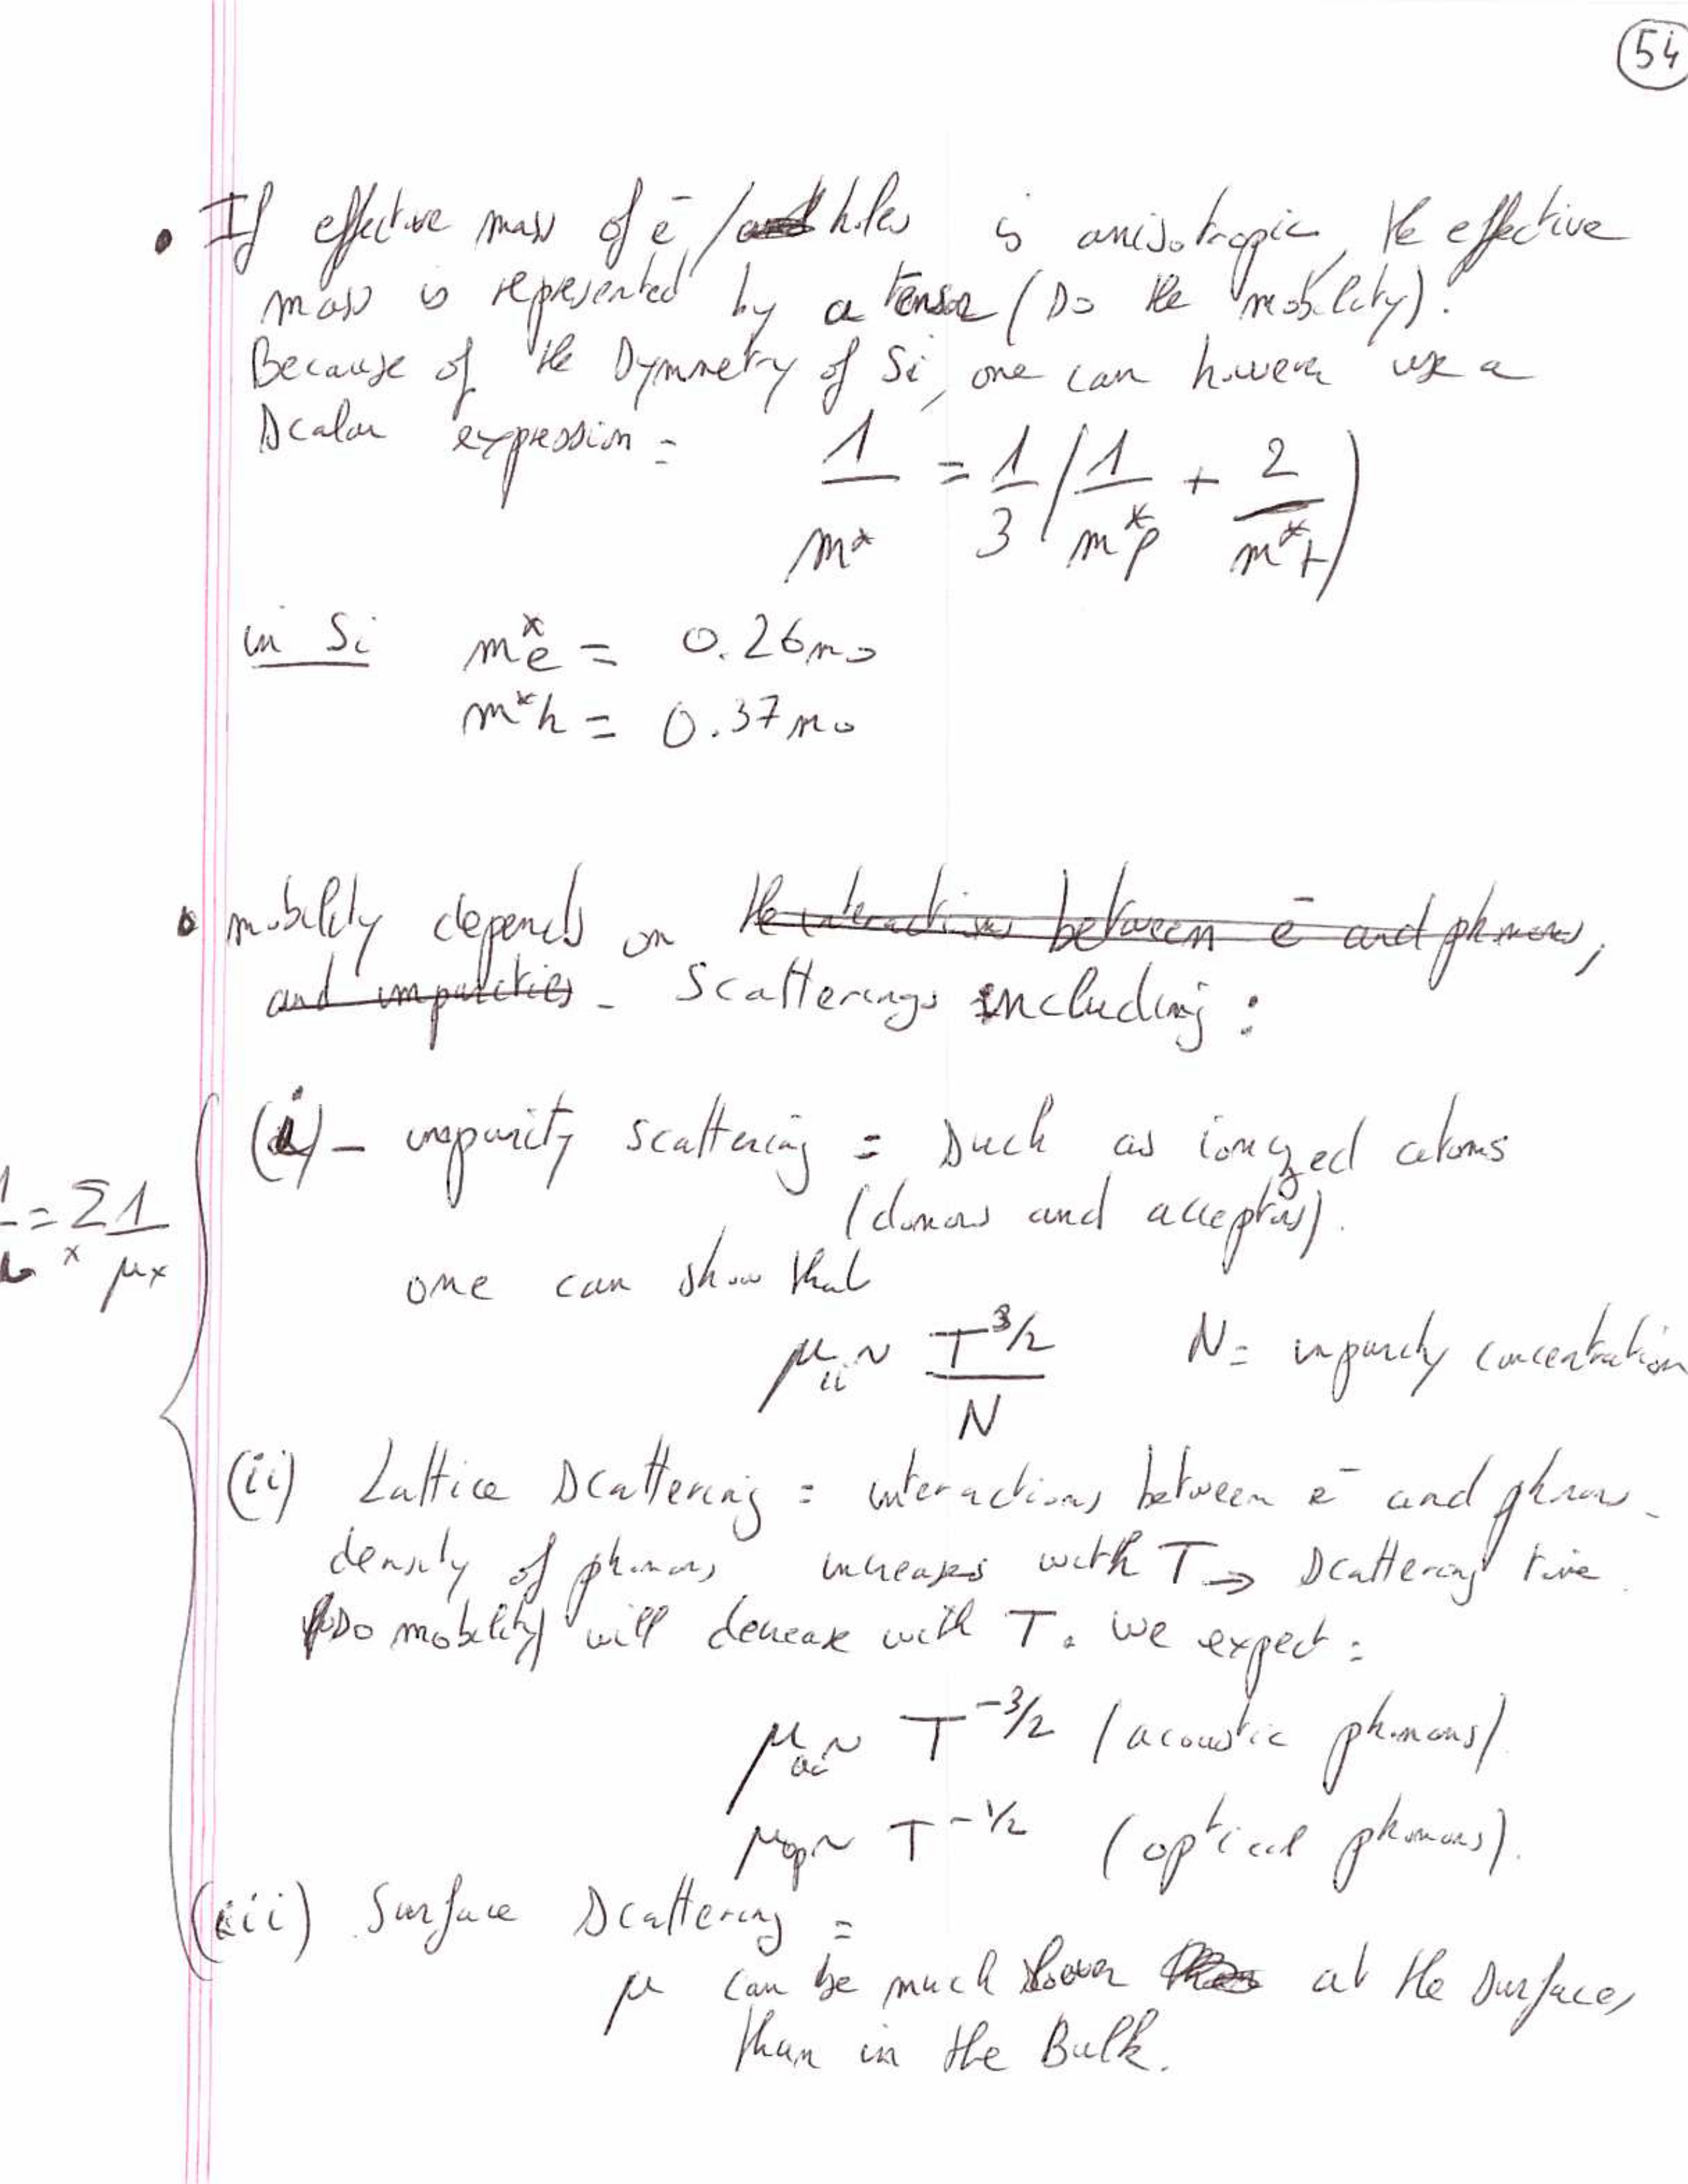 54
• If effective mass of e⁻ / and holes is anisotropic, the effective
mass is represented by a tensor (so the mobility).
Because of the symmetry of Si, one can however use a
scalar expression =
1/m* = 1/3 (1/m*l + 2/m*t)
in Si m*e = 0.26 m0
m*h = 0.37 m0
• mobility depends on the interactions between e⁻ and phonons,
and impurities - Scatterings including :
(i) - impurity scattering = such as ionized atoms
(donors and acceptors).
= Σx 1/μx
one can show that
μii ~ T^3/2 / N N = impurity concentration
(ii) Lattice scattering = interactions between e⁻ and phonons -
density of phonons increases with T → scattering time
(so mobility) will decrease with T. We expect =
μac ~ T^-3/2 (acoustic phonons)
μop ~ T^-1/2 (optical phonons).
(iii) Surface scattering =
μ can be much lower at the surface,
than in the Bulk.